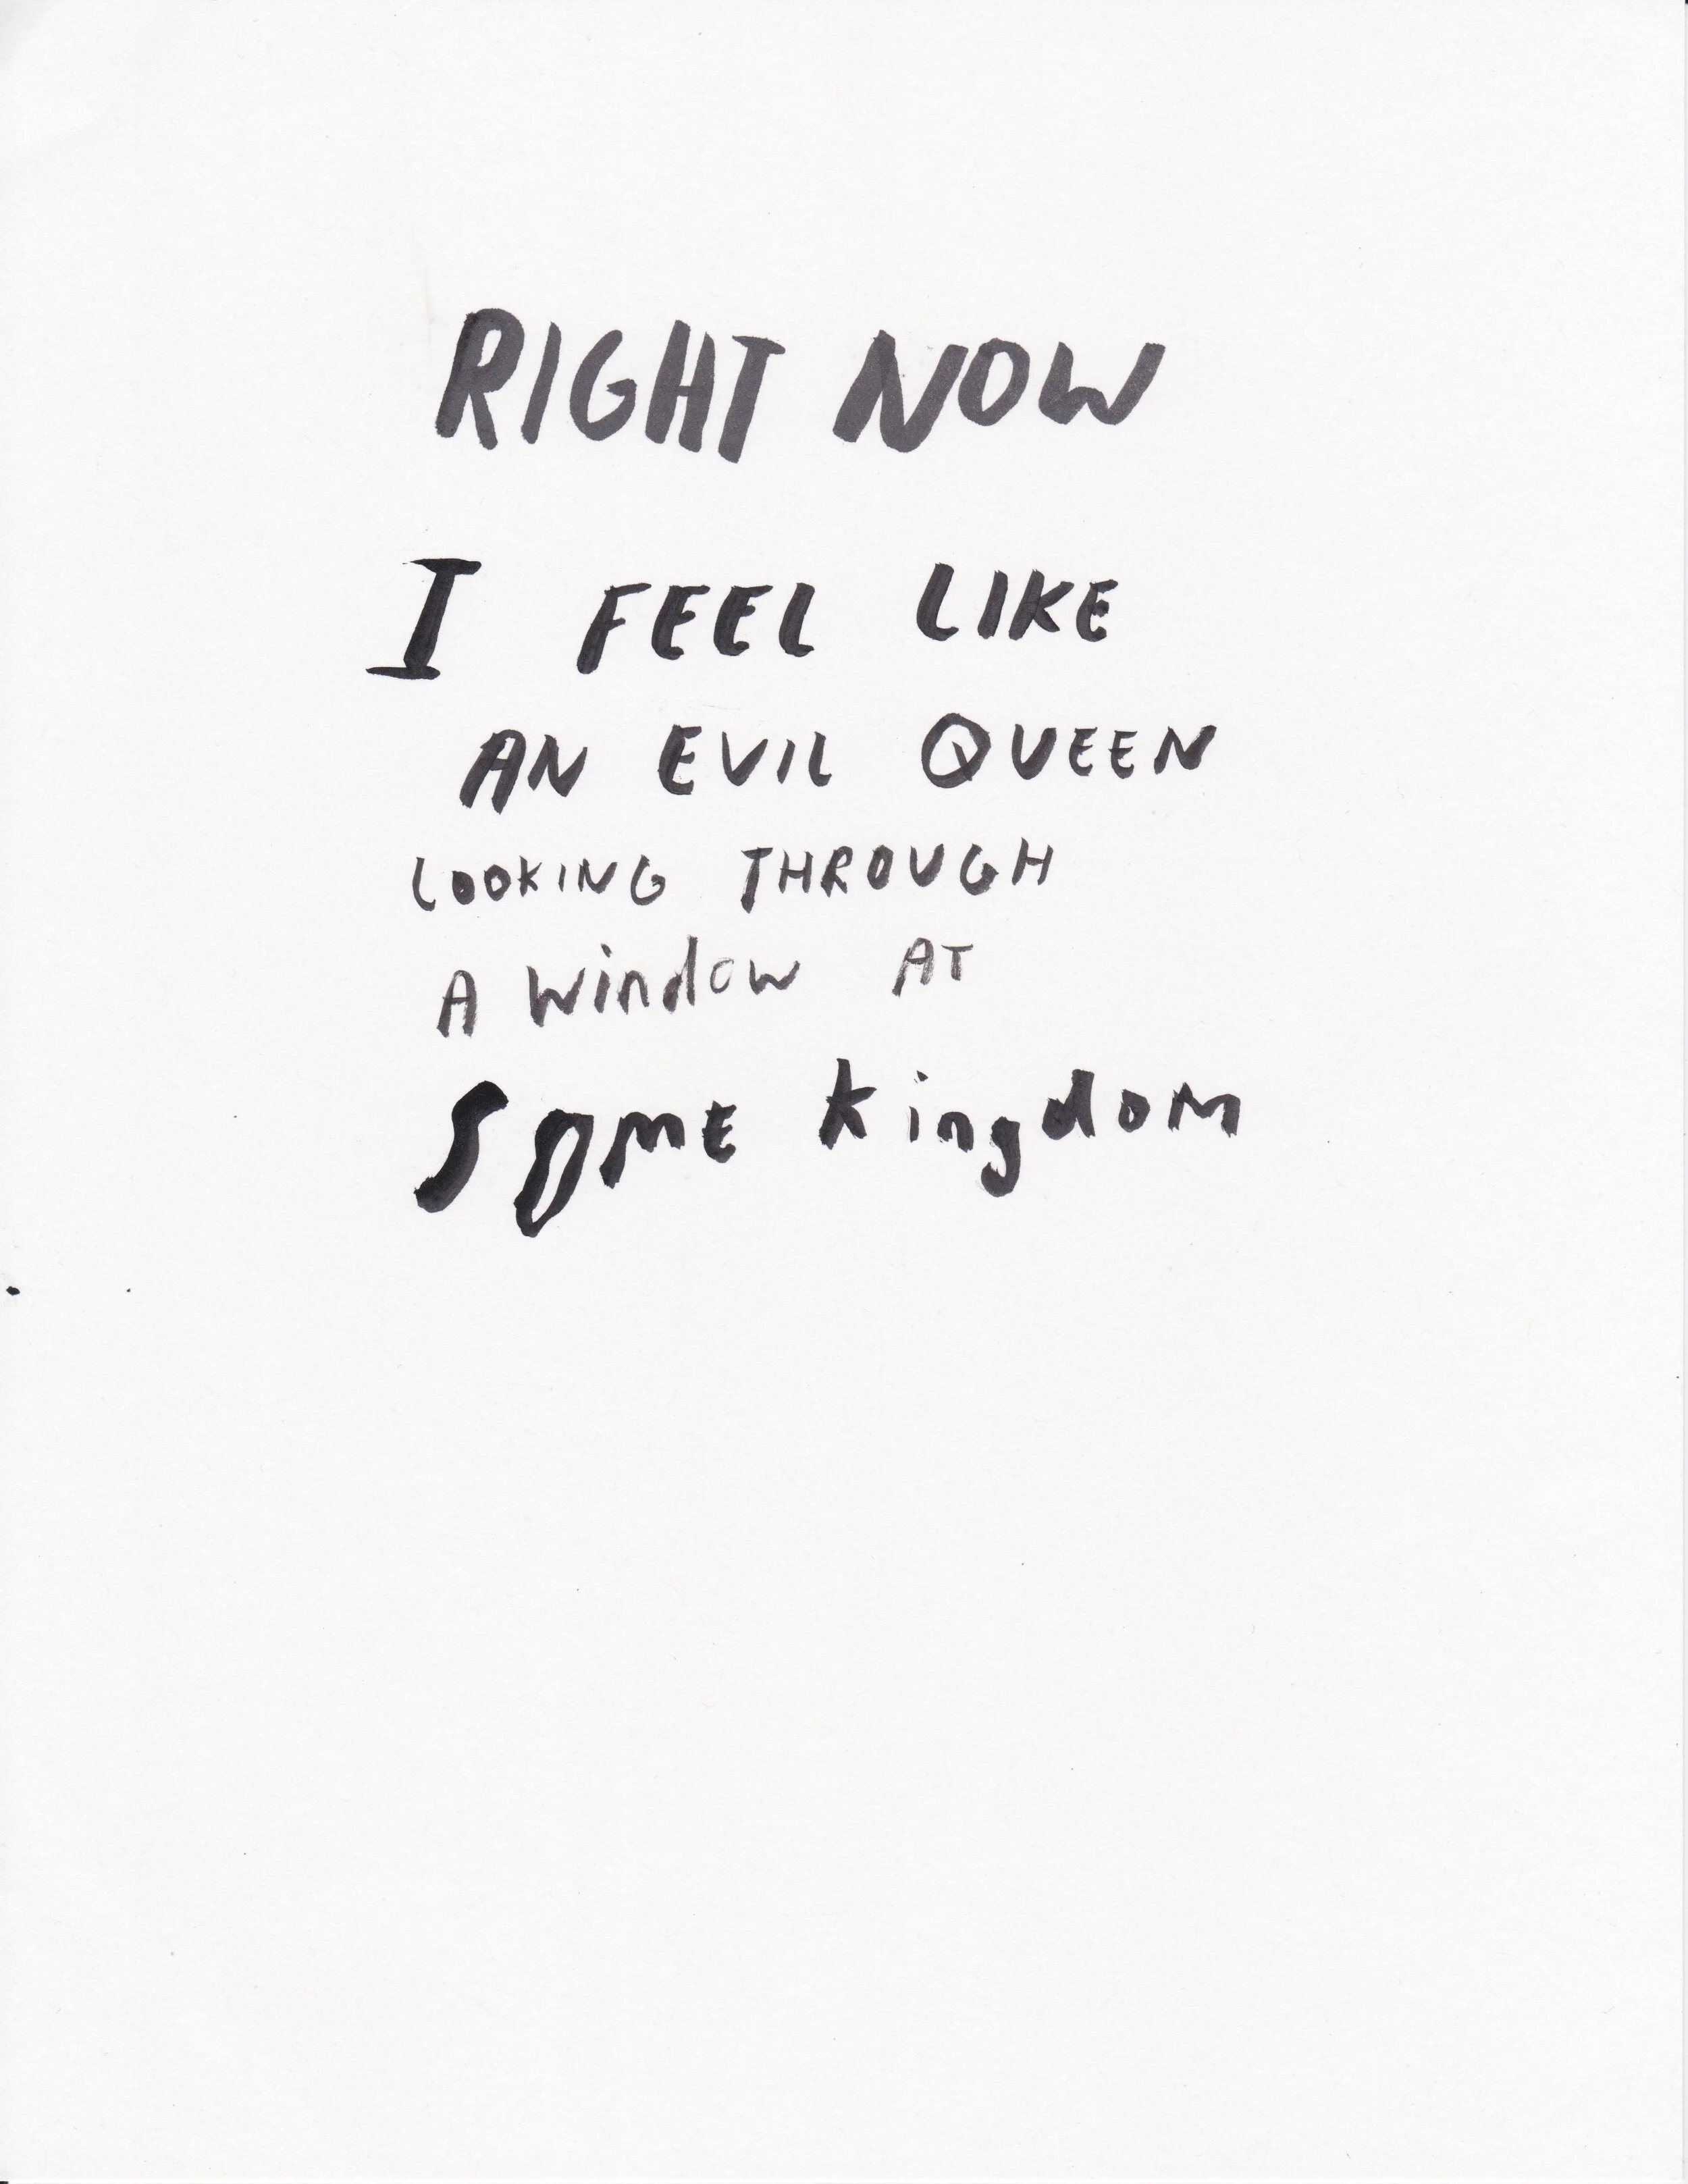 RIGHT NOW
I FEEL LIKE
AN EVIL QUEEN
LOOKING THROUGH
A window AT
SOME kingdom